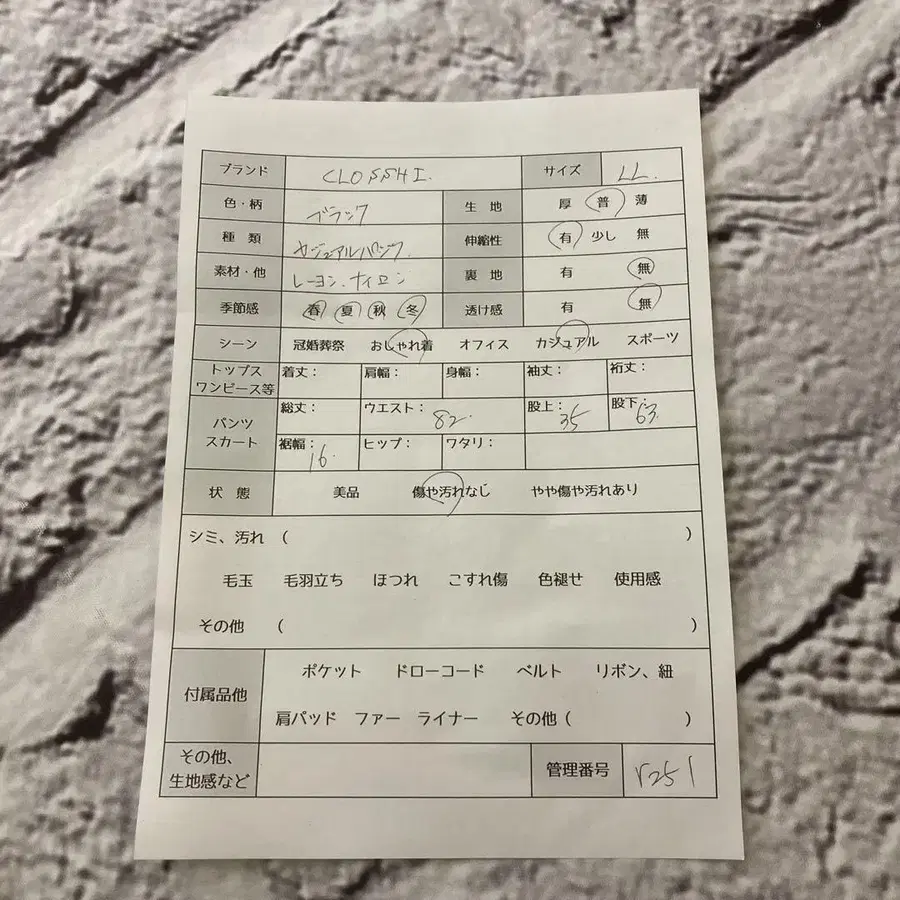 ブランド CLOSSHI. サイズ LL.
色・柄 ブラック 生 地 厚 普 薄
種 類 カジュアルパンツ. 伸縮性 有 少し 無
素材・他 レーヨン、ナイロン 裏 地 有 無
季節感 春 夏 秋 冬 透け感 有 無
シーン 冠婚葬祭 おしゃれ着 オフィス カジュアル スポーツ
トップス ワンピース等 着丈： 肩幅： 身幅： 袖丈： 裄丈：
パンツ スカート 総丈： ウエスト：82. 股上：35 股下：63.
裾幅：16. ヒップ： ワタリ：
状 態 美品 傷や汚れなし やや傷や汚れあり
シミ、汚れ （ ）
毛玉 毛羽立ち ほつれ こすれ傷 色褪せ 使用感
その他 （ ）
付属品他 ポケット ドローコード ベルト リボン、紐
肩パッド ファー ライナー その他（ ）
その他、生地感など 管理番号 r251